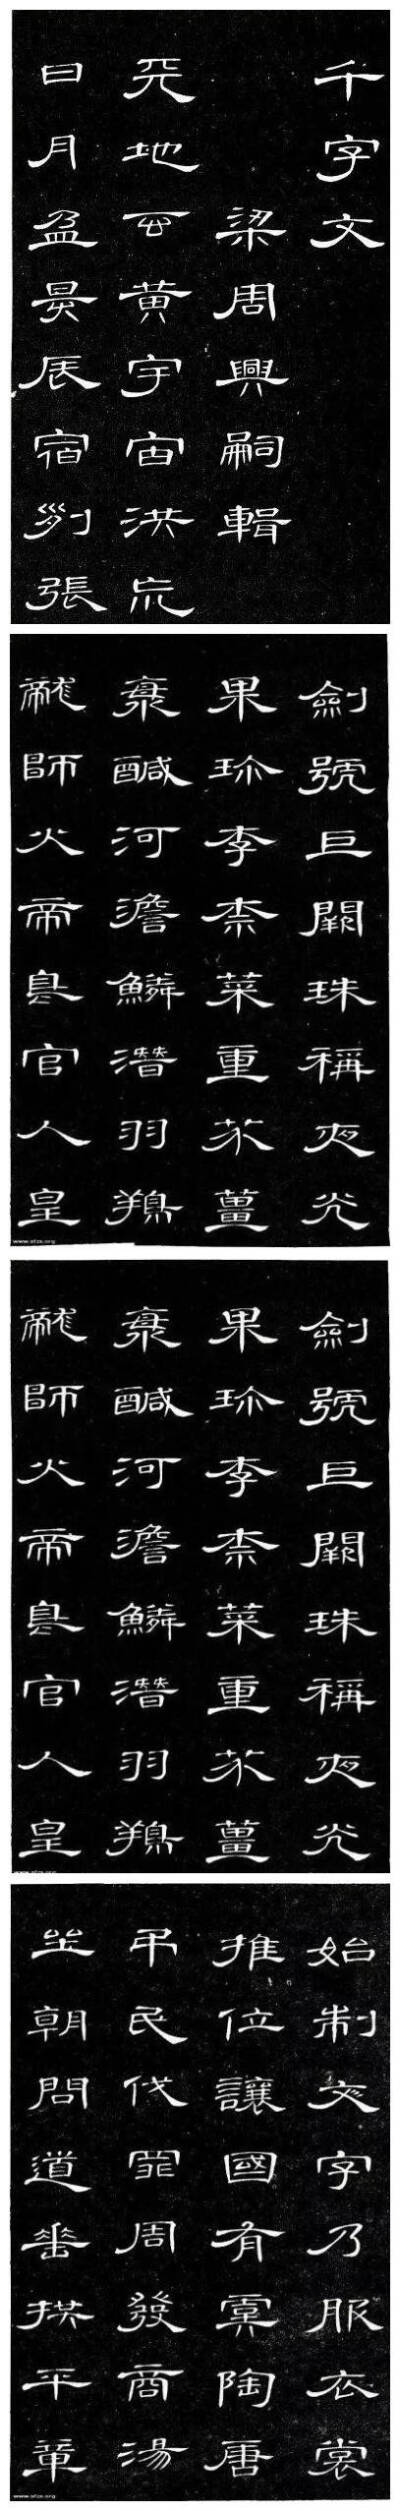 千字文
梁周興嗣輯
天地玄黃宇宙洪荒
日月盈昃辰宿列張
劍號巨闕珠稱夜光
果珍李柰菜重芥薑
海鹹河澹鱗潛羽翔
龍師火帝鳥官人皇
www.sfzx.org
劍號巨闕珠稱夜光
果珍李柰菜重芥薑
海鹹河澹鱗潛羽翔
龍師火帝鳥官人皇
始制文字乃服衣裳
推位讓國有虞陶唐
弔民伐罪周發商湯
坐朝問道垂拱平章